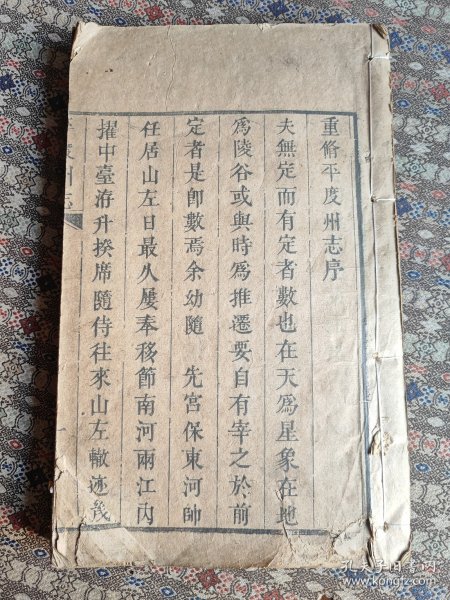 重脩平度州志序
夫無定而有定者數也在天爲星象在地
爲陵谷或與時爲推遷要自有宰之於前
定者是卽數焉余幼隨 先宮保東河帥
任居山左日最久屢奉移節南河兩江内
擢中臺洊升揆席隨侍往來山左轍迹茂
度州志
孔夫子旧书网
www.kongfz.com